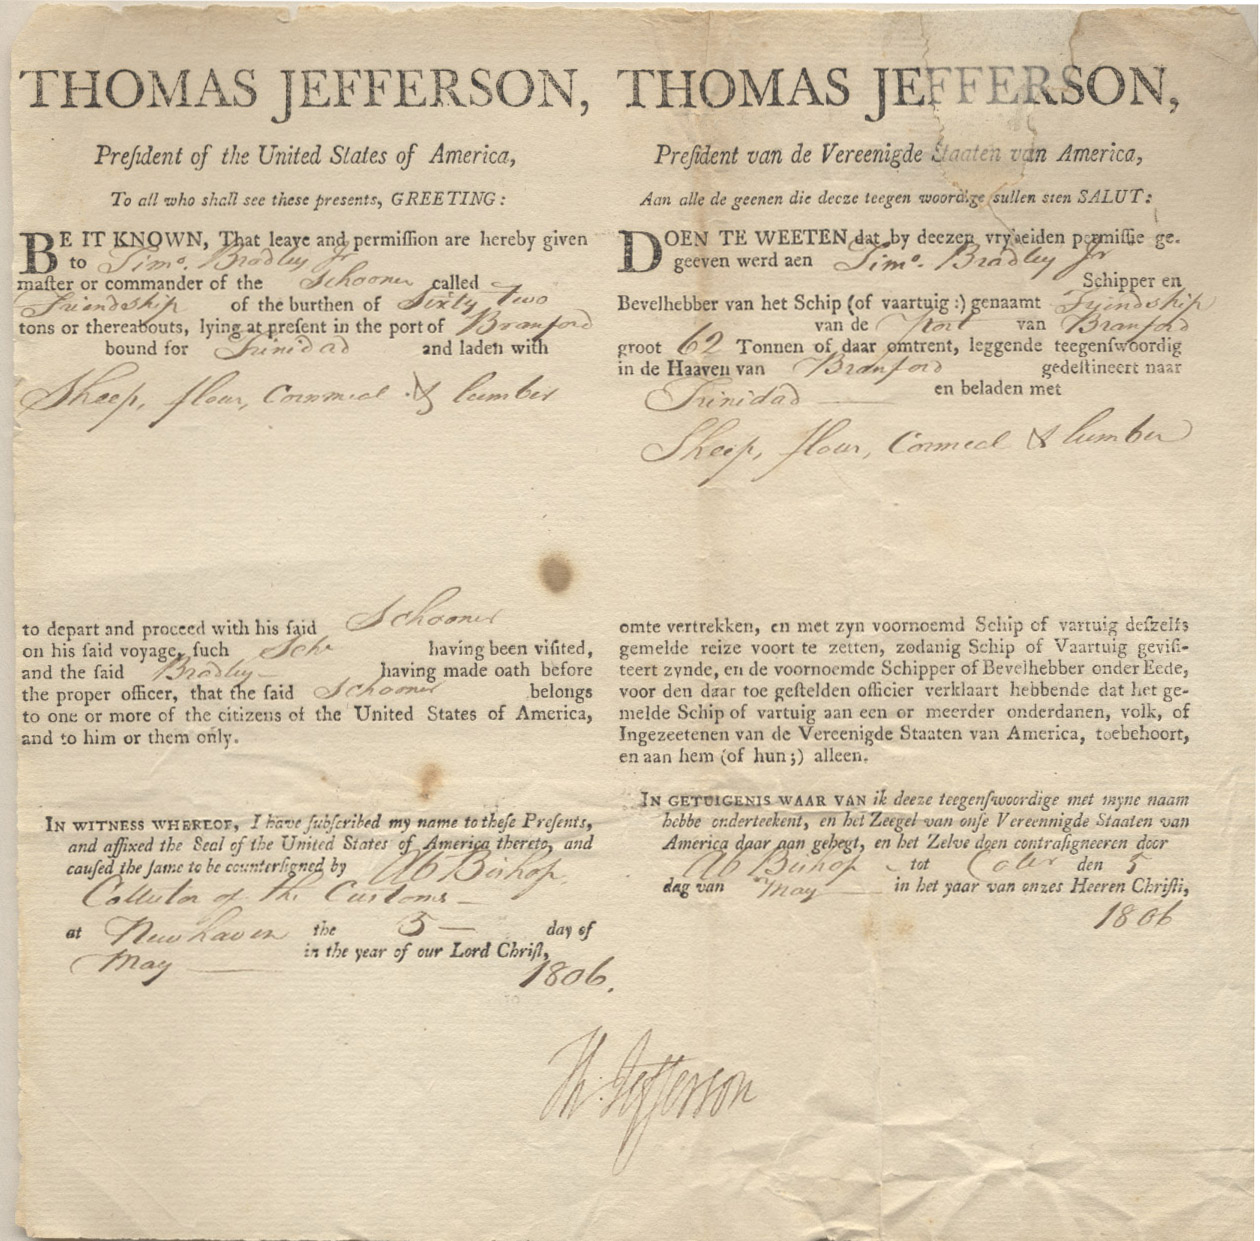 THOMAS JEFFERSON,
Preſident of the United States of America,
To all who shall see these presents, GREETING:
BE IT KNOWN, That leave and permiſſion are hereby given
to Timo. Bradley Jr
maſter or commander of the Schooner called
Friendship of the burthen of Sixty two
tons or thereabouts, lying at preſent in the port of Branford
bound for Trinidad and laden with
Sheep, flour, Cornmeal & lumber
to depart and proceed with his ſaid Schooner
on his ſaid voyage, ſuch Schr having been viſited,
and the ſaid Bradley having made oath before
the proper officer, that the ſaid Schooner belongs
to one or more of the citizens of the United States of America,
and to him or them only.
IN WITNESS WHEREOF, I have ſubſcribed my name to theſe Preſents,
and affixed the Seal of the United States of America thereto, and
cauſed the ſame to be counterſigned by Ab Bishop
Collector of the Customs
at New haven the 5 day of
May in the year of our Lord Chriſt,
1806.
THOMAS JEFFERSON,
Preſident van de Vereenigde Staaten van America,
Aan alle de geenen die deeze teegen woordige sullen sien SALUT:
DOEN TE WEETEN dat by deezen vryheiden permiſſie ge-
geeven werd aen Timo. Bradley Jr
Schipper en
Bevelhebber van het Schip (of vaartuig:) genaamt Friendship
van de Port van Branford
groot 62 Tonnen of daar omtrent, leggende teegenſwoordig
in de Haaven van Branford gedeſtineert naar
Trinidad en beladen met
Sheep, flour, Cornmeal & lumber
omte vertrekken, en met zyn voornoemd Schip of vartuig deſzelfs
gemelde reize voort te zetten, zodanig Schip of Vaartuig geviſi-
teert zynde, en de voornoemde Schipper of Bevelhebber onder Eede,
voor den daar toe geſtelden officier verklaart hebbende dat het ge-
melde Schip of vartuig aan een or meerder onderdanen, volk, of
Ingezeetenen van de Vereenigde Staaten van America, toebehoort,
en aan hem (of hun;) alleen.
IN GETUIGENIS WAAR VAN ik deeze teegenſwoordige met myne naam
hebbe onderteekent, en het Zeegel van onſe Vereennigde Staaten van
America daar aan gehegt, en het Zelve doen contraſigneeren door
Ab Bishop tot Coler den 5
dag van May in het yaar van onzes Heeren Chriſti,
1806
Th: Jefferson